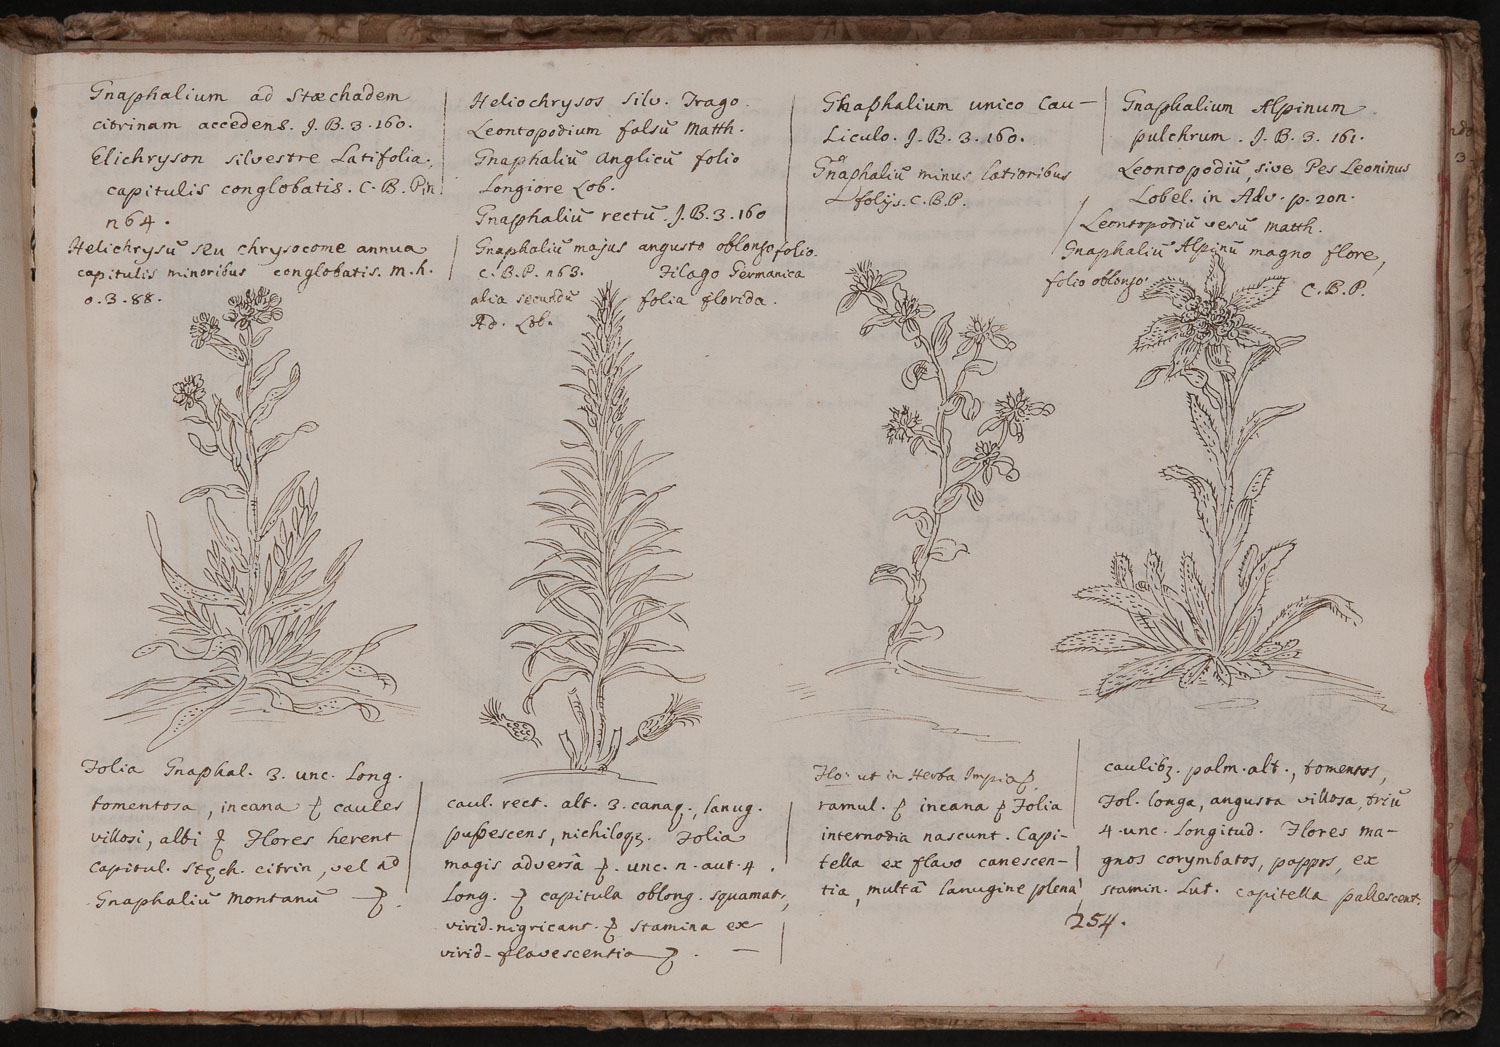 Gnaphalium ad Stæchadem
citrinam accedens. J. B. 3. 160.
Elichryson silvestre Latifolia.
capitulis conglobatis. C. B. Pin
n 64.
Helichrysū seu chrysocome annua
capitulis minoribus conglobatis. m. h.
o. 3. 88.
Heliochrysos silv. Trago.
Leontopodium falsū Matth.
Gnaphaliū Anglicū folio
Longiore Lob.
Gnaphaliū rectū. J. B. 3. 160
Gnaphaliū majus angusto oblongo folio.
C. B. P. n 63. Filago Germanica
alia secundū folia florida.
Ad. Lob.
Gnaphalium unico Cau-
Liculo. J. B. 3. 160.
Gnaphaliū minus latioribus
folijs. C. B. P.
Gnaphalium Alpinum
pulchrum. J. B. 3. 161.
Leontopodiū, sive Pes Leoninus
Lobel. in Adv. p. 201.
Leontopodiū verū Matth.
Gnaphaliū Alpinū magno flore,
folio oblongo. C. B. P.
Folia Gnaphal. 3. unc. Long.
tomentosa, incana & caules
villosi, albi & Flores herent
capitul. Stęch. citrin, vel ad
Gnaphaliū montanū
caul. rect. alt. 3. lanug.
Folia
magis adversā unc. n. aut. 4.
Long. & capitula oblong. squamat.,
virid. nigricant. & stamina ex
virid-flavescentia
Flo. ut in Herba Impia
ramul. & incana & Folia
internodia nascunt. Capi-
tella ex flavo canescen-
tia, multā lanugine plena
caulibȝ. palm. alt., tomentos,
Fol. longa, angusta villosa, triū
4. unc. Longitud. Flores ma-
gnos corymbatos, pappos, ex
stamin. Lut. capitella pallescent.
254.